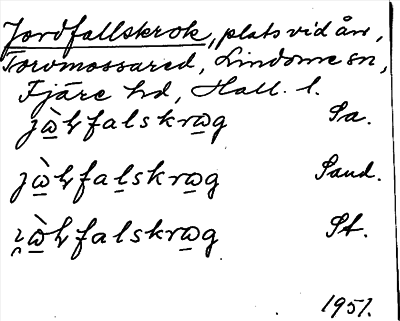 Jordfallskrok, plats vid ån,
Torvmossared, Lindome sn,
Fjäre hd, Hall. l.
jὼhfalskrωg Sa.
jὼhfalskrωg Sand.
ὼhfalskrωg St.
1951.